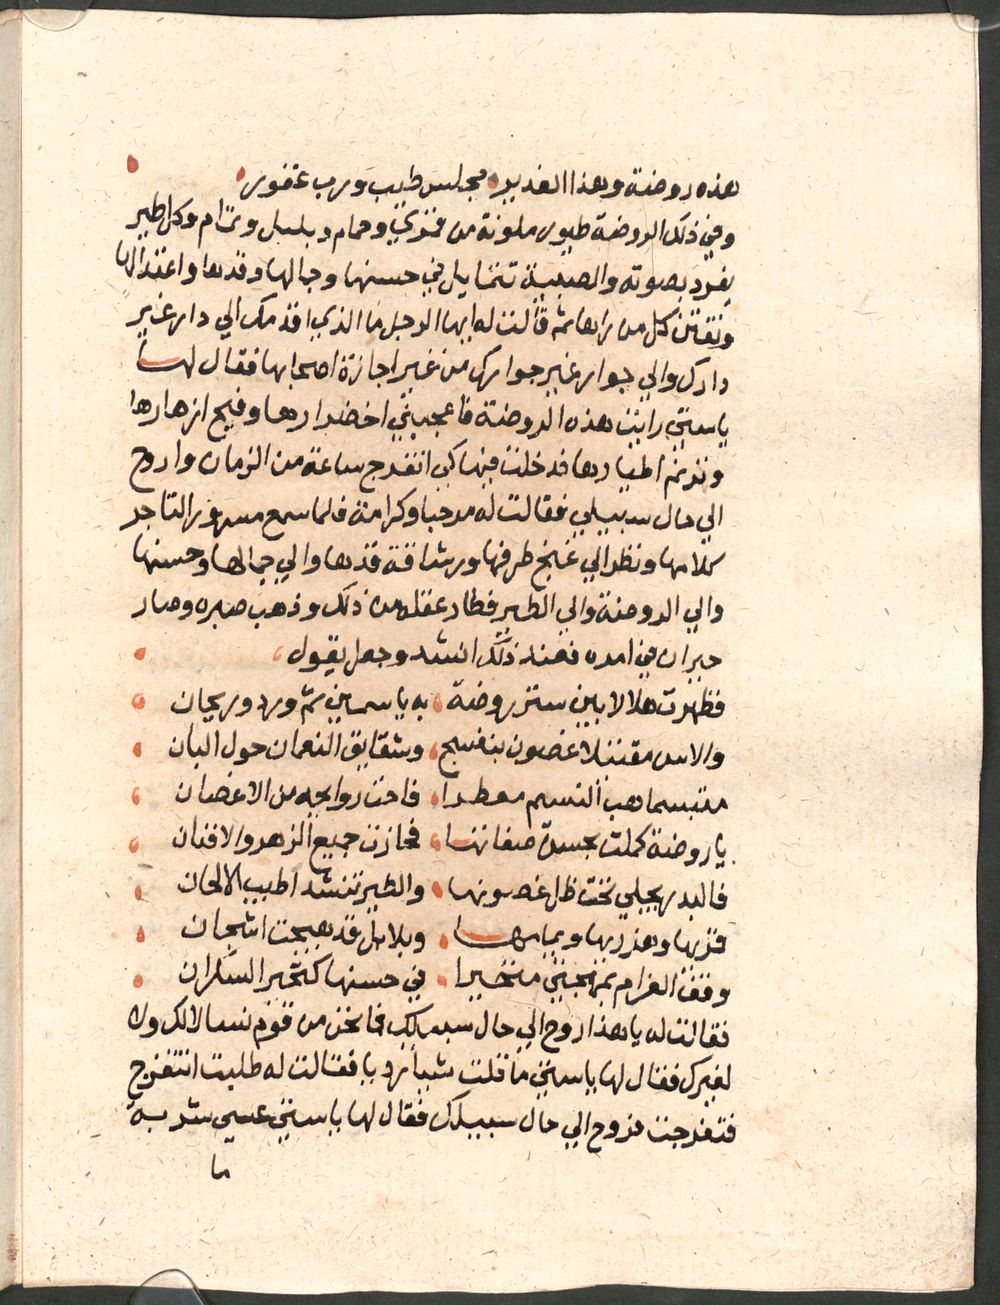 هذه روضة وهذا الغدير مجلس طيب ورب غفور
وفي ذلك الروضة طيور ملونة من قمري وحمام وبلبل ويمام وكل طير
يغرد بصوته والصبية تتمايل في حسنها وجمالها وقدها واعتدالها
وتفتن كل من راها ثم قالت له ايها الرجل ما الذي اقدمك الي دار غير
دارك والي جوار غير جوارك من غير اجازة اصحابها فقال لها
ياستي رايت هذه الروضة فاعجبني اخضرارها وفيح ازهارها
وترنم اطيارها فدخلت فيها كي اتفرج ساعة من الزمان واروح
الي حال سبيلي فقالت له مرحبا وكرامة فلما سمع مسرور التاجر
كلامها ونظر الي غنج طرفها ورشاقة قدها والي جمالها وحسنها
والي الروضة والي الطير فطار عقله من ذلك وذهب صبره وصار
حيران في امره فعند ذلك انشد وجعل يقول
فظهرت هلالا بين ستر روضة به ياسمين ثم ورد وريحان
والاس مقتبلا غصون بنفسج وشقايق النعمان حول البان
متبسما هب النسيم معطرا فاحت روايحه من الاغصان
يا روضة كملت بحسن صفاتها فحازت جميع الزهر والافنان
فالبدر يجلي تحت ظل غصونها والطير تنشد اطيب الالحان
قمريها وهزريها ويمامها وبلابل قد هيجت اشجان
وقف الغرام بمهجتي متحيرا في حسنها كتحير السكران
فقالت له يا هذا روح الي حال سبيلك فما نحن من قوم نسا لا لك ولا
لغيرك فقال لها ياستي ما قلت شيأ رديا فقالت له طلبت انتفرج
فتفرجت فروح الي حال سبيلك فقال لها ياستي عسي شربة
ما